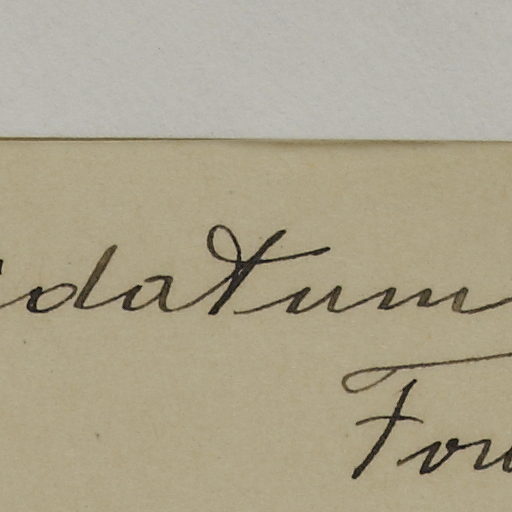 datum
Fou